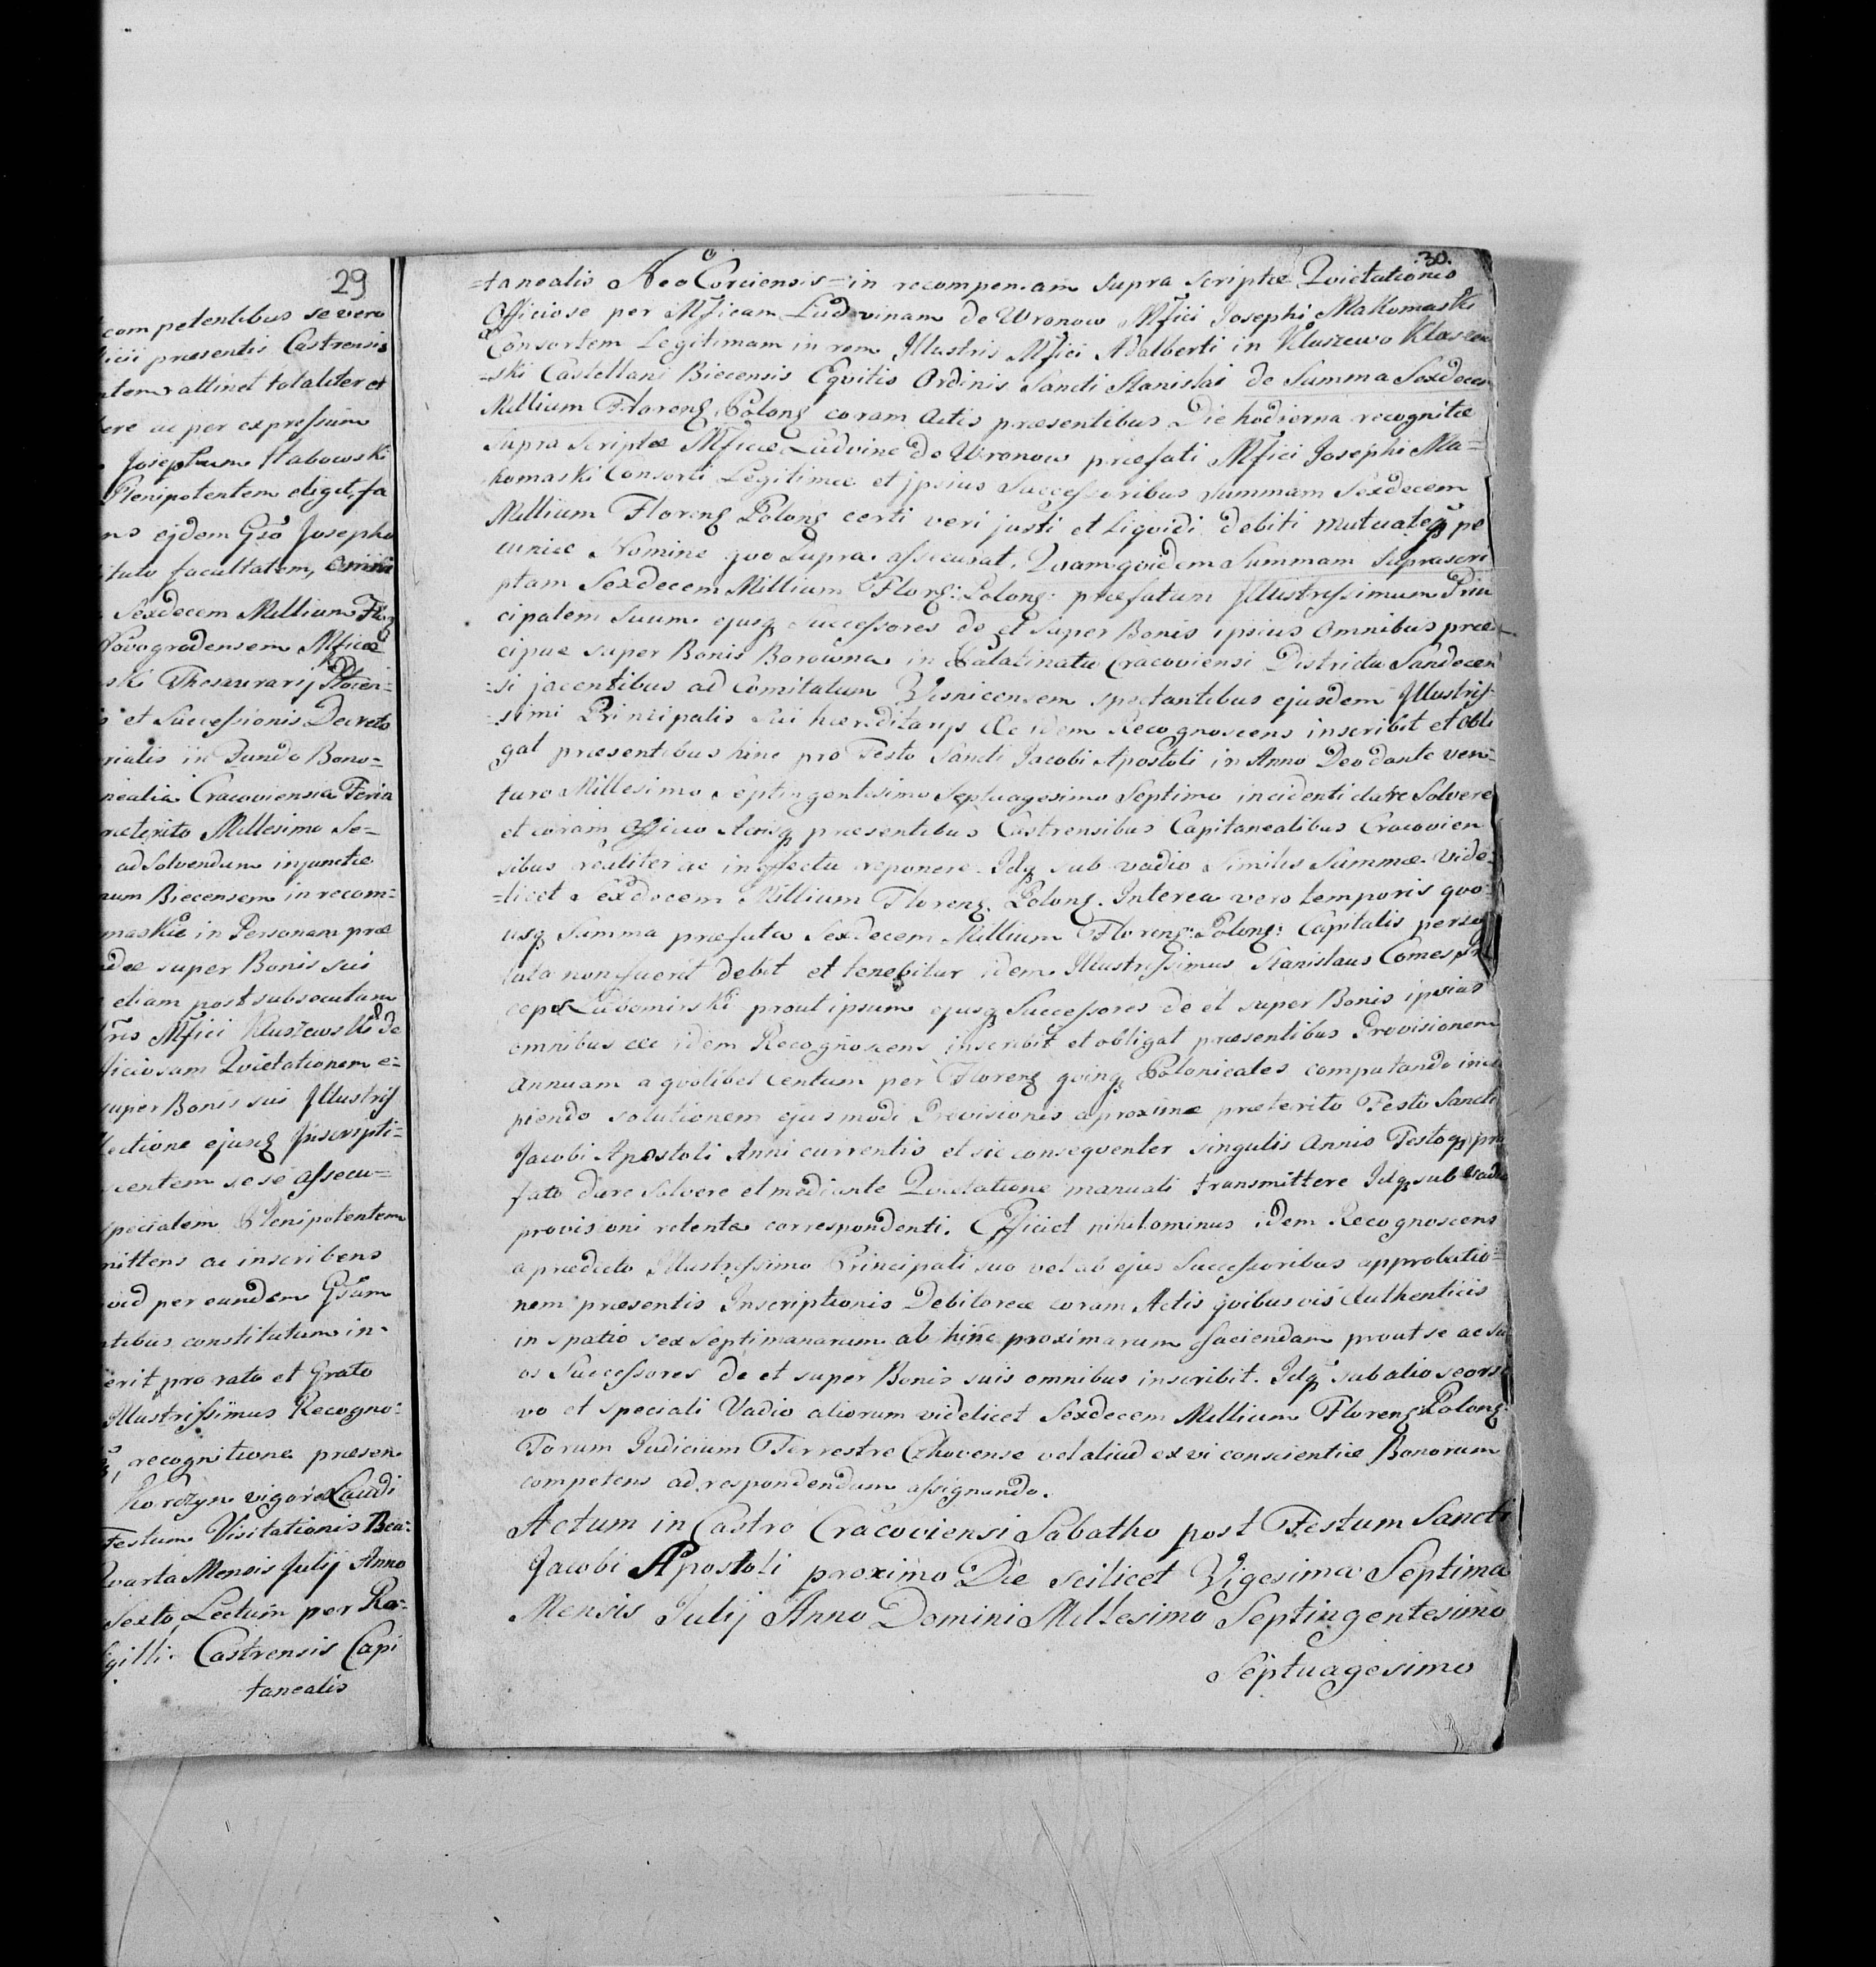 29
competentibus se vero
icii praesentis Castrensis
attinet totaliter et
ere ac per expressum
Josephum Habowski
Plenipotentem eligit, fa
ns ejdem Gso Josepho
facultatem,
Sexdecem Millium Flo
Novogrodensem Mficae
ski Thesaurarij
et Successionis Decreto
rialis in Fundo Bono=
nealia Cracoviensia Feria
raeterito Millesimo Se=
ad Solvendum injunctae
num Biecensem in recom=
maskie in Personam prae
dae super Bonis sui
etiam post subsecutam
ris Mfici Kluszewski de
ficiosam Quietationem e=
super Bonis suis Illustriss
lectione ejusq Inscripti=
scentem sese assecu=
specialem Plenipotentem
mittens ac inscribens
uid per eundem Gsum
ntibus constitutum in=
erit pro rato et Grato
Illustrissimus Recogno=
recognitione praesen
Korczyn vigore Laudi
Festum Visitationis Bea=
Quarta Mensis Julij Anno
Sexto, Lectum per Ra=
gilli. Castrensis Capi
tanealis
30.
=tanealis Neo Corciensis = in recompensam supra scriptae Quietationis
Officiose per Mficam Ludvinam de Wronow Mfici Josephi Makomaski
Consortem Legitimam in rem Illustris Mfici Adalberti in Kluszewo Kluszew
=ski Castellani Biecensis Equitis Ordinis Sancti Stanislai de Summa Sexdecem
Millium Floreng Polong coram Actis praesentibus Die hodierna recognitae
supra scriptae Mficae Ludvine de Wronow praefati Mfici Josephi Ma=
komaski Consorti Legitimae et jpsius Successoribus summam Sexdecem
Millium Floreng Polong certi veri justi et Liquidi debiti mutuateq pe
cuniae Nomine quo supra assecurat. Quamquidem Summam suprascri
ptam Sexdecem Millium Florg: Polong: praefatum Illustrissimum Prin
cipalem Suum ejusq Successores de et super Bonis ipsius Omnibus prae
cipue super Bonis Borowna in Palatinatu Cracoviensi Districtu Sandecen
=si jacentibus ad Comitatum Wisnicensem spectantibus ejusdem Illustris=
=simi Principalis sui haereditarijs &c idem Recognoscens inscribit et obli
gat praesentibus hinc pro Festo Sancti Jacobi Apostoli in Anno Deo dante ven=
turo Millesimo Septingentesimo Septuagesimo Septimo incidenti dare Solvere
et coram Officio Actisq praesentibus Castrensibus Capitanealibus Cracovien
sibus realiter ac in effectu reponere. Idq sub vadio similis Summae vide=
=licet Sexdecem Millium Floreng. Polong. Interea vero temporis quo=
usq Summa praefata Sexdecem Millium Floreng: Polong: Capitalis perso
luta non fuerit debet et tenebitur idem Illustrissimus Stanislaus Comes Prin
ceps Lubomirski prout ipsum ejusq Successores de et super Bonis ipsius
omnibus &c idem Recognoscens inscribit et obligat praesentibus Provisionem
annuam a quolibet Centum per Floreng quinq Polonicales computando inci
piendo solutionem ejusmodi Provisionis a proxime praeterito Festo Sancti
Jacobi Apostoli Anni currentis et sic consequenter singulis Annis Festoq prae
fato dare Solvere et mediante Quietatione manuali transmittere Idq sub vadio
provisioni retentae correspondenti. Efficiet nihilominus idem Recognoscens
a praedicto Illustrissimo Principali suo vel ab ejus Successoribus approbatio=
nem praesentis Inscriptionis Debitoreae coram Actis quibusvis Authenticis
in spatio sex Septimanarum ab hinc proximarum faciendam prout se ac su
os Successores de et super Bonis suis omnibus inscribit. Idq sub alio seorsi
vo et speciali Vadio aliorum videlicet Sexdecem Millium Floreng Polong.
Forum Judicium Terrestre Czhovense vel aliud ex vi conscientiae Bonorum
competens ad respondendum assignando.
Actum in Castro Cracoviensi Sabatho post Festum Sancti
Jacobi Apostoli proximo Die scilicet Vigesima Septima
Mensis Julij Anno Domini Millesimo Septingentesimo
Septuagesimo